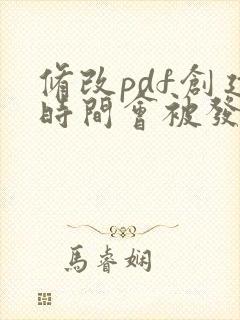 修改pdf創建
時間會被發
馬睿嫻